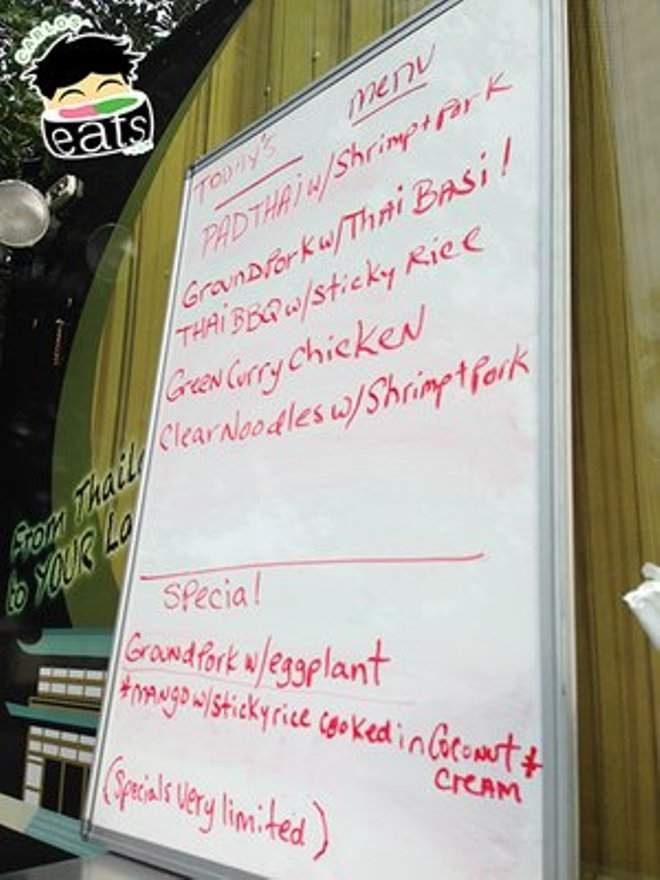 CARLOS
eats
TODAY'S MENU
PAD THAI w/Shrimp+Pork
GrounD Pork w/Thai BASil
THAi BBQ w/Sticky Rice
GreeN Curry ChickeN
Clear Noodles w/Shrimp+Pork
From Thail
to YOUR La
SPecial
Ground Pork w/eggplant
*MANGO w/Sticky rice cooked in Coconut *
CREAM
(Specials Very limited)